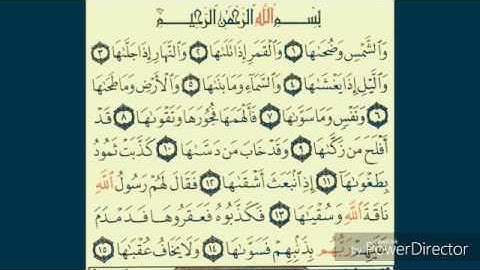 بِسْمِ اللَّهِ الرَّحْمَٰنِ الرَّحِيمِ
وَالشَّمْسِ وَضُحَىٰهَا ١ وَالْقَمَرِ إِذَا تَلَىٰهَا ٢ وَالنَّهَارِ إِذَا جَلَّىٰهَا ٣
وَاللَّيْلِ إِذَا يَغْشَىٰهَا ٤ وَالسَّمَاءِ وَمَا بَنَىٰهَا ٥ وَالْأَرْضِ وَمَا طَحَىٰهَا
٦ وَنَفْسٍ وَمَا سَوَّىٰهَا ٧ فَأَلْهَمَهَا فُجُورَهَا وَتَقْوَىٰهَا ٨ قَدْ
أَفْلَحَ مَن زَكَّىٰهَا ٩ وَقَدْ خَابَ مَن دَسَّىٰهَا ١٠ كَذَّبَتْ ثَمُودُ
بِطَغْوَىٰهَا ١١ إِذِ انبَعَثَ أَشْقَىٰهَا ١٢ فَقَالَ لَهُمْ رَسُولُ اللَّهِ
نَاقَةَ اللَّهِ وَسُقْيَٰهَا ١٣ فَكَذَّبُوهُ فَعَقَرُوهَا فَدَمْدَمَ
عَلَيْهِمْ رَبُّهُم بِذَنبِهِمْ فَسَوَّىٰهَا ١٤ وَلَا يَخَافُ عُقْبَٰهَا ١٥
PowerDirector